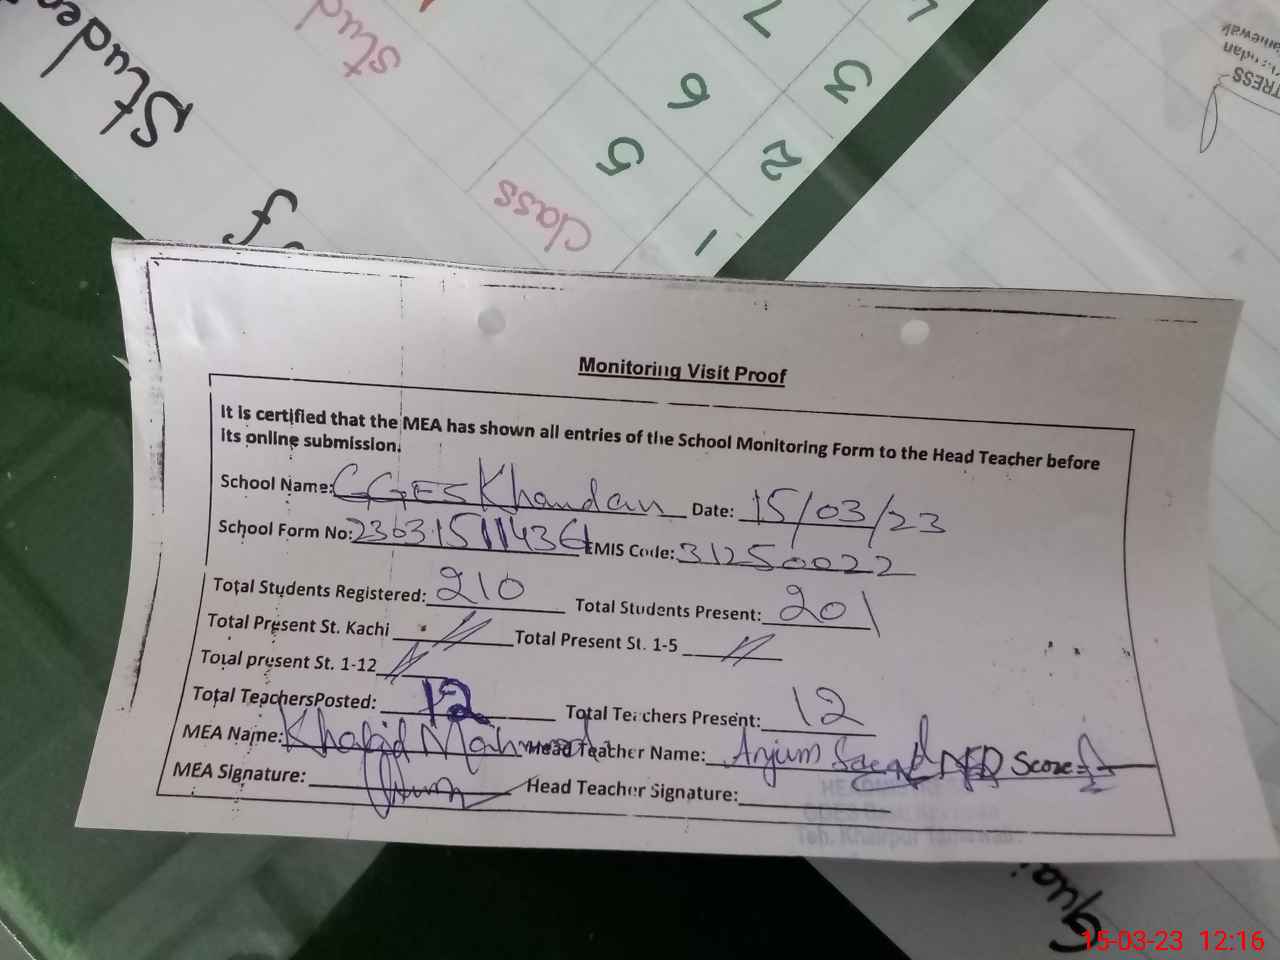 Student
stud
7
3
6
2
5
1
class
f
TRESS
Monitoring Visit Proof
It is certified that the MEA has shown all entries of the School Monitoring Form to the Head Teacher before
its online submission.
School Name: GGES Khandan Date: 15/03/23
School Form No: EMIS Code: 31250022
Total Students Registered: 210 Total Students Present: 201
Total Present St. Kachi Total Present St. 1-5
Total present St. 1-12
Total TeachersPosted: 12 Total Teachers Present: 12
MEA Name: Khalid Mahmood Head Teacher Name: Anjum Saeed Score
MEA Signature: Head Teacher Signature:
Teh. Khairpur Tamewali
15-03-23 12:16